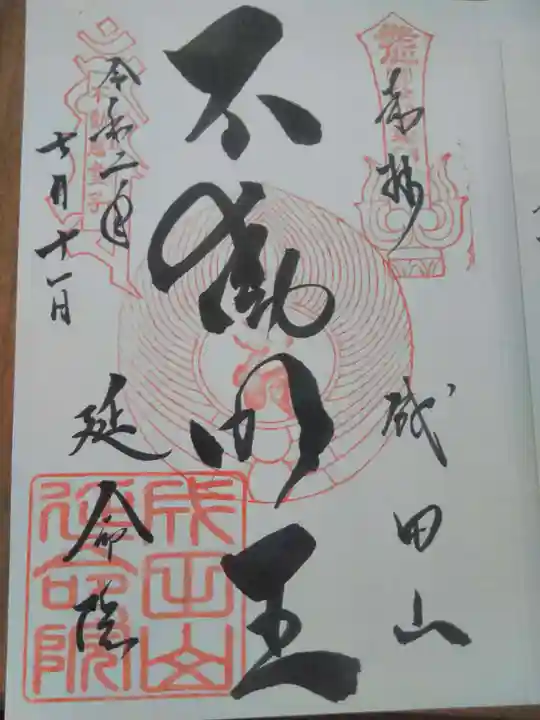 奉拝
成田山
不動明王
令和二年
七月十一日
延命院
成田山
延命院